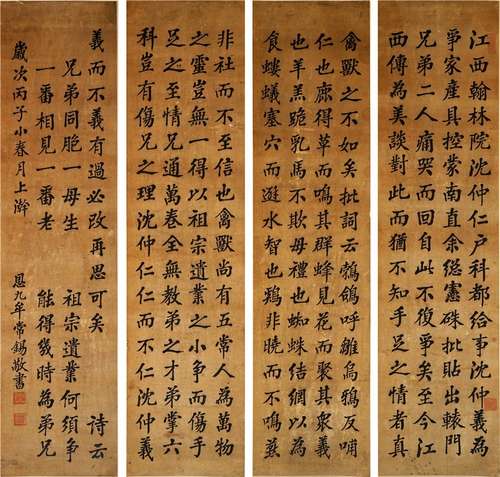 江西翰林院沈仲仁户科都給事沈仲義為
爭家產具控蒙南直余總憲硃批貼出轅門
兄弟二人痛哭而回自此不復爭矣至今江
西傳為美談對此而猶不知手足之情者真
禽獸之不如矣批詞云鵓鴿呼雛烏鴉反哺
仁也鹿得草而鳴其群蜂見花而聚其衆義
也羊羔跪乳馬不欺母禮也蜘蛛結網以為
食螻蟻塞穴而避水智也鷄非曉而不鳴燕
非社而不至信也禽獸尚有五常人為萬物
之靈豈無一得以祖宗遺業之小爭而傷手
足之至情兄通萬卷全無教弟之才弟掌六
科豈有傷兄之理沈仲仁仁而不仁沈仲義
義而不義有過必改再思可矣 詩云
兄弟同胞一母生 祖宗遺業何須爭
一番相見一番老 能得幾時為弟兄
歲次丙子小春月上澣 恩九牟常錫敬書